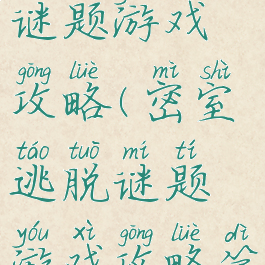 谜题游戏
gōng lüè mì shì
攻略(密室
táo tuō mí tí
逃脱谜题
yóu xì gōng lüè dì
游戏攻略